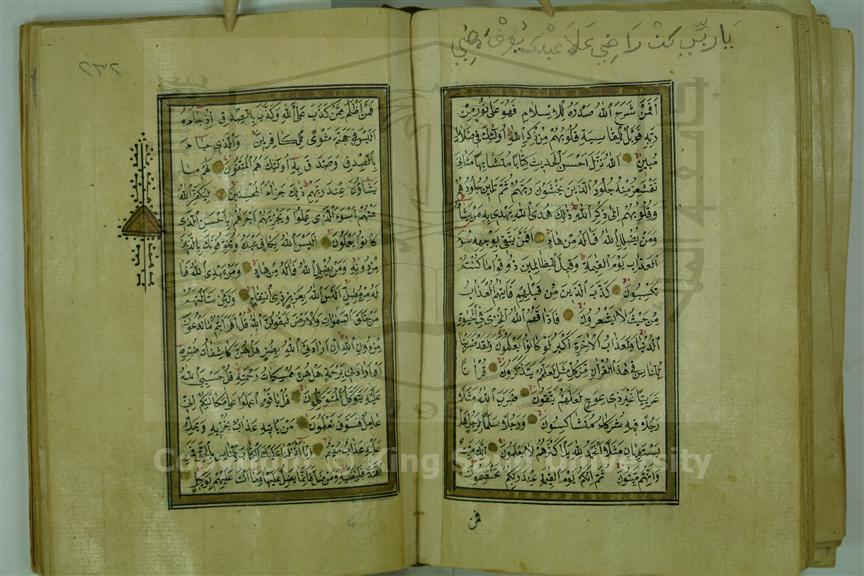 يا رب كن راضي علا عبدك
افمن شرح الله صدره للاسلام فهو على نور من
ربه فويل للقاسية قلوبهم من ذكر الله اولئك في ضلال
مبين الله نزل احسن الحديث كتابا متشابها مثاني
تقشعر منه جلود الذين يخشون ربهم ثم تلين جلودهم
وقلوبهم الى ذكر الله ذلك هدى الله يهدي به من يشاء
ومن يضلل الله فماله من هاد افمن يتقى بوجهه سوء
العذاب يوم القيمة وقيل للظالمين ذوقوا ما كنتم
تكسبون كذب الذين من قبلهم فاتيهم العذاب
من حيث لا يشعرون فاذاقهم الله الخزى في الحيوة
الدنيا ولعذاب الاخرة اكبر لو كانوا يعلمون ولقد ضربنا
للناس في هذا القران من كل مثل لعلهم يتذكرون قرانا
عربيا غير ذى عوج لعلهم يتقون ضرب الله مثلا
رجلا فيه شركاء متشاكسون ورجلا سلما لرجل هل
يستويان مثلا الحمد لله بل اكثرهم لا يعلمون انك ميت
وانهم ميتون ثم انكم يوم القيمة عند ربكم تختصمون
فمن
٢٣٢
فمن اظلم ممن كذب على الله وكذب بالصدق اذ جاءه
اليس في جهنم مثوى للكافرين والذى جاء
بالصدق وصدق به اولئك هم المتقون لهم ما
يشاؤن عند ربهم ذلك جزاء المحسنين ليكفر الله
عنهم اسوء الذى عملوا ويجزيهم اجرهم باحسن الذى
كانوا يعملون اليس الله بكاف عبده ويخوفونك بالذين
من دونه ومن يضلل الله فماله من هاد ومن يهدى الله فما
له من مضل اليس الله بعزيز ذى انتقام ولئن سالتهم
من خلق السموات والارض ليقولن الله قل افرايتم ما تدعون
من دون الله ان ارادنى الله بضر هل هن كاشفات ضره
او ارادنى برحمة هل هن ممسكات رحمته قل حسبى الله
عليه يتوكل المتوكلون قل يا قوم اعملوا على مكانتكم انى
عامل فسوف تعلمون من ياتيه عذاب يخزيه ويحل
عليه عذاب مقيم انا انزلنا عليك الكتاب للناس بالحق فمن
اهتدى فلنفسه ومن ضل فانما يضل عليها وما انت عليهم بوكيل
Copyright © King Saud University